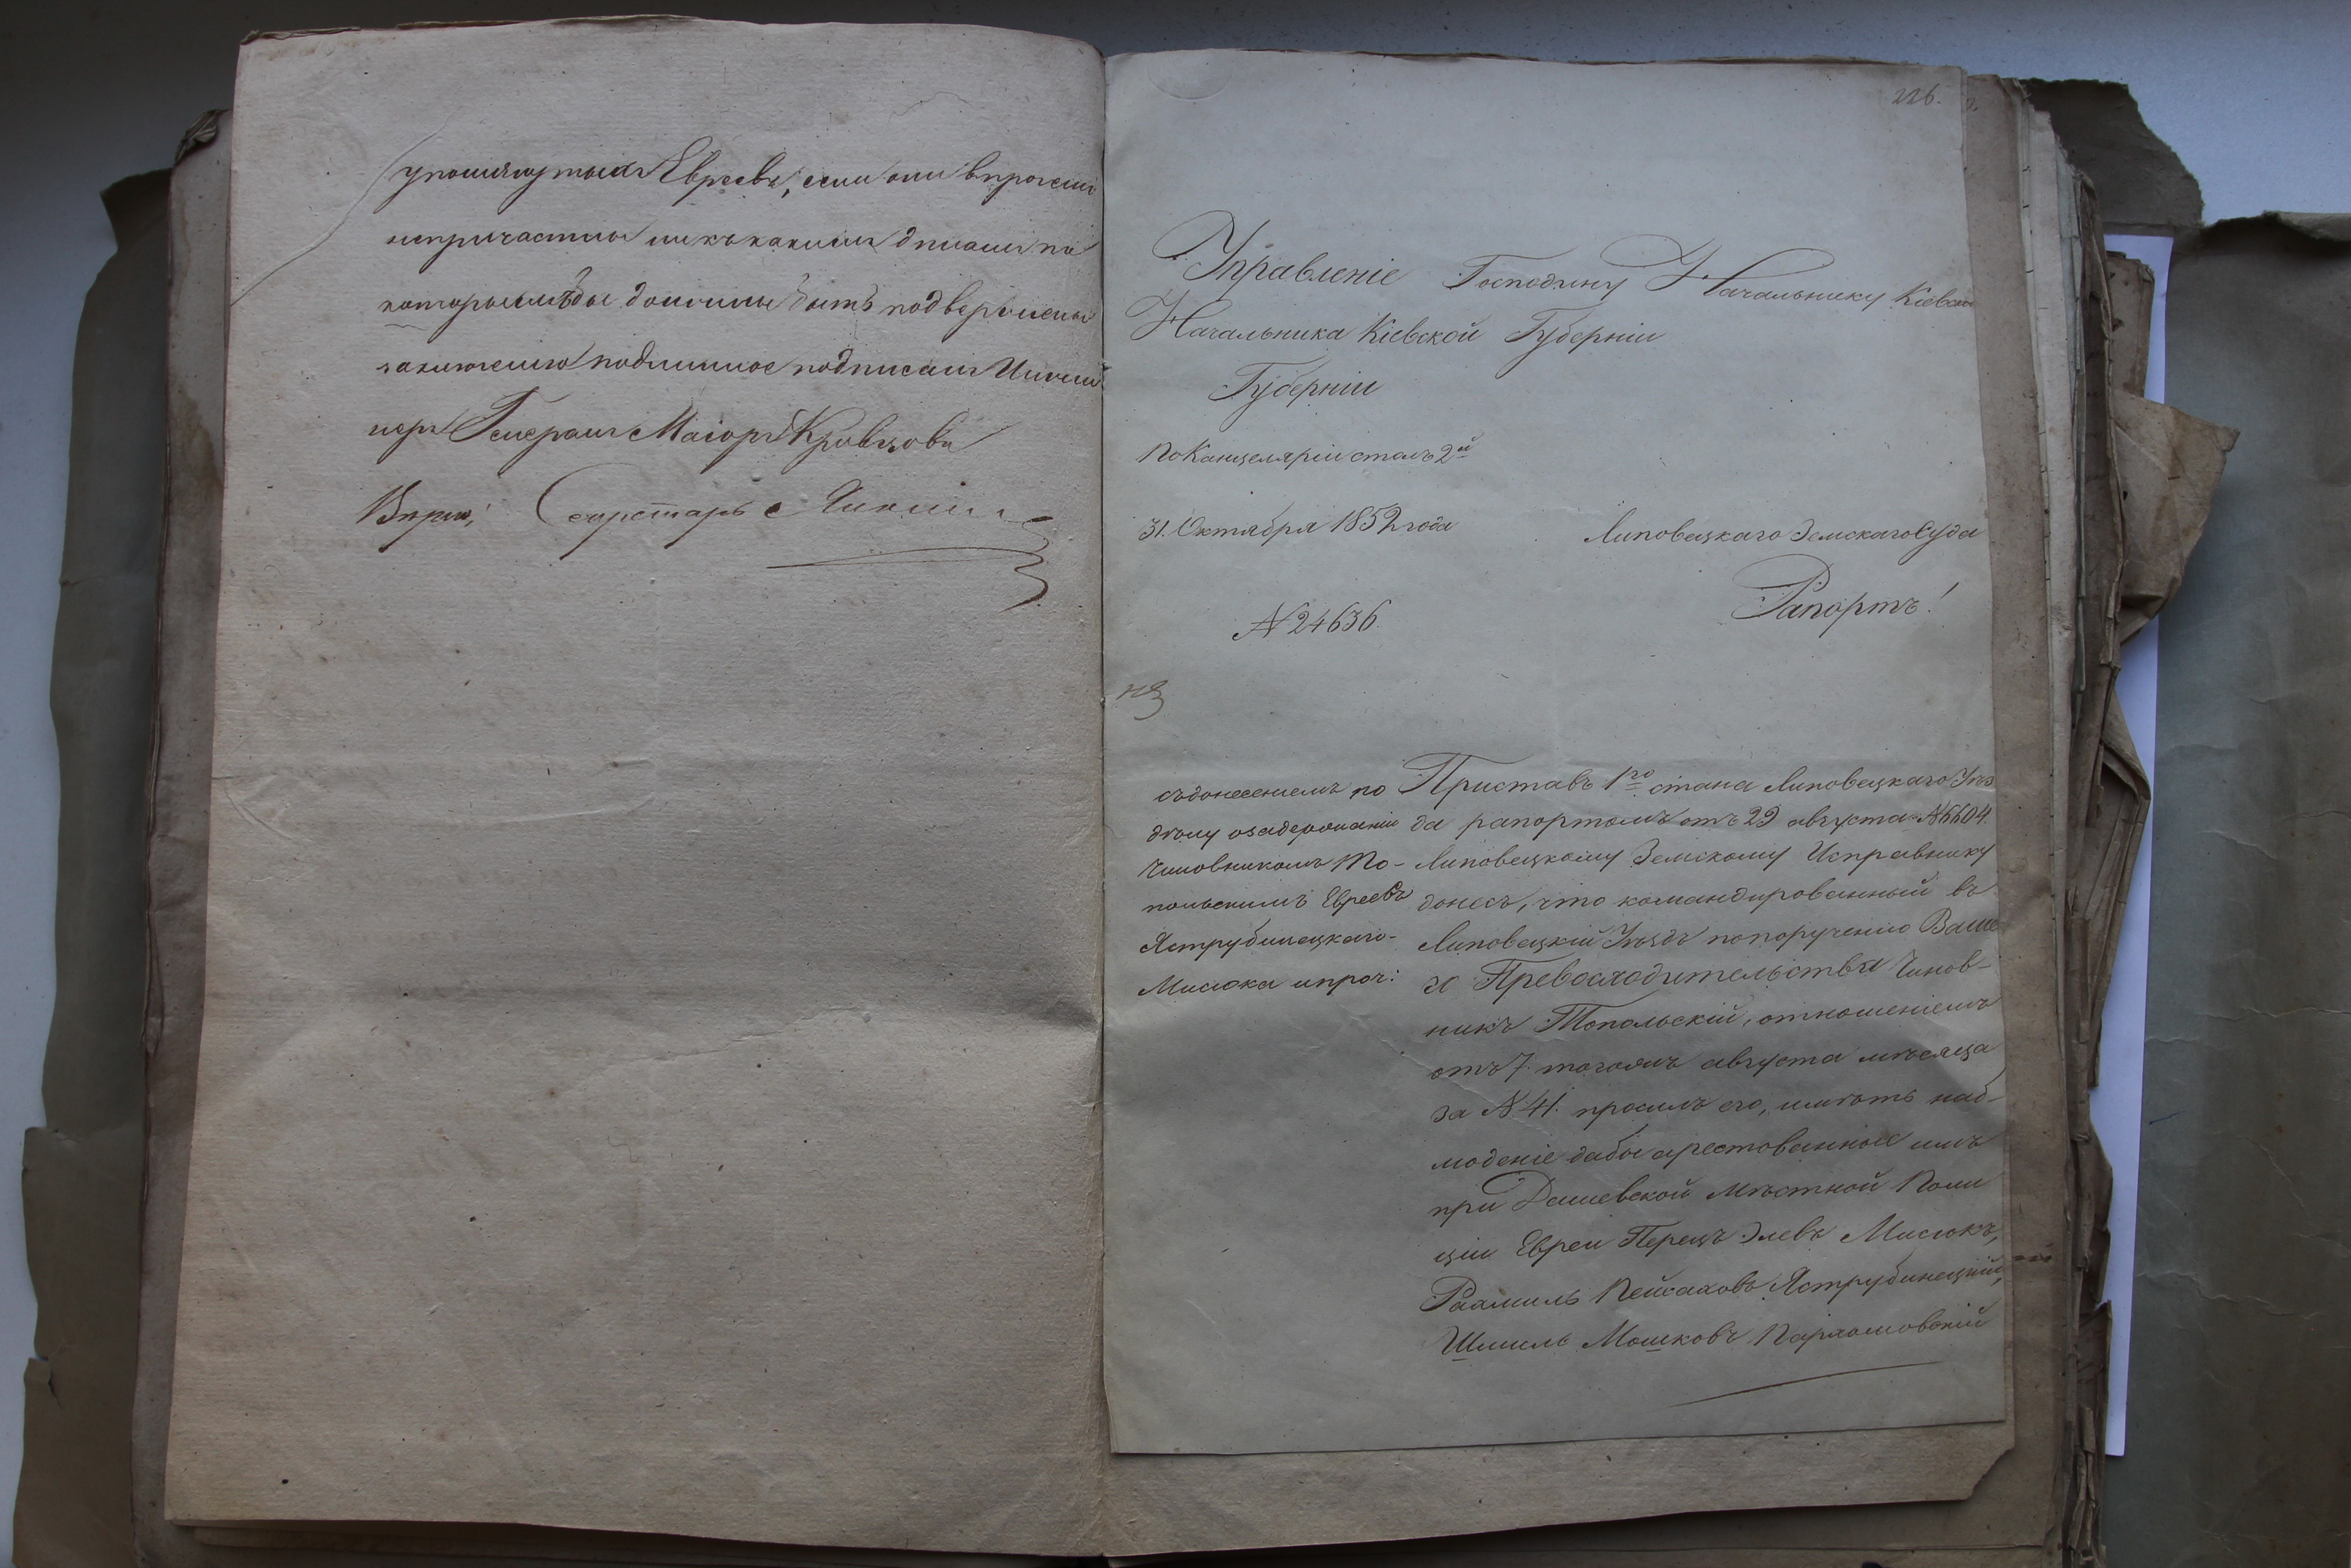 упомянутыхъ Евреевъ, если они впрочемъ
непричастны никъ какимъ дѣламъ по
которымъ бы должны быть подвержены
заключенію подлинное подписалъ Инжи
неръ Генералъ Маіоръ Кривцовъ
Вѣрно: Секретарь
226.
Управленіе
Начальника Кіевской
Губерніи
По Канцеляріи столъ 2й
31. Октября 1852 года
N 24636.
Господину Начальнику Кіевской
Губерніи
Липовецкаго Земскаго Суда
Рапортъ!
съ донесеніемъ по
дѣлу о задержаніи
Чиновникомъ То-
польскимъ Евреевъ
Яструбинецкаго-
Мисюка и проч:
Приставъ 1го стана Липовецкаго Уѣз
да рапортомъ отъ 29 августа N 6604.
Липовецкому Земскому Исправнику
донесъ, что командированный въ
Липовецкій Уѣздъ по порученію Ваше
го Превосходительства Чинов-
никъ Топольскій, отношеніемъ
отъ 7. тогожъ августа мѣсяца
за N 41. просилъ его, имѣть наб-
люденіе дабы арестованные имъ
при Дашевской Мѣстной Поли
ціи Евреи Перецъ Элевъ Мисюкъ,
Рахмиль Пейсаховъ Яструбинецкій,
Шмиль Мошковъ Пархомовскій